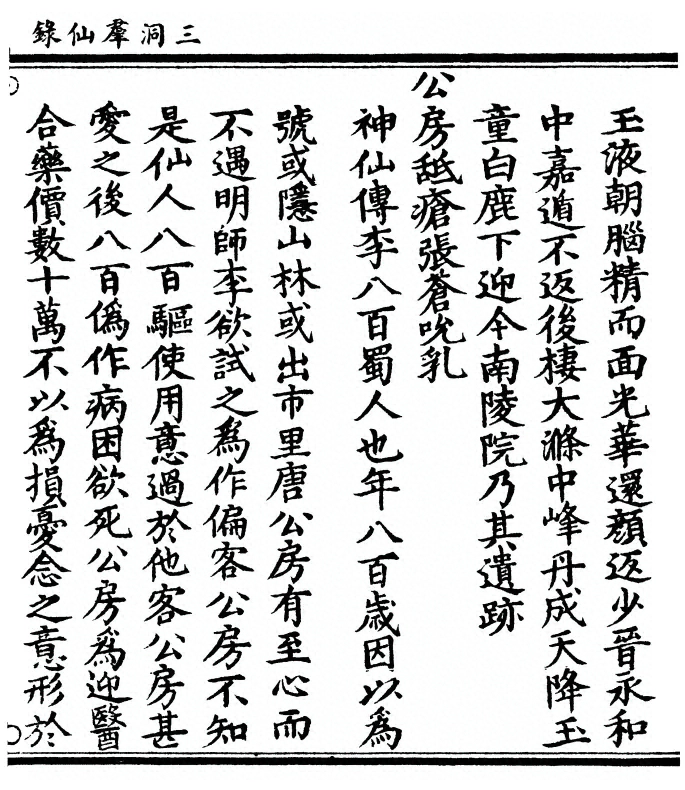 三洞羣仙錄
玉液朝腦精而面光華還顏返少晉永和
中嘉遁不返後棲大滌中峰丹成天降玉
童白鹿下迎今南陵院乃其遺跡
公房舐瘡張蒼吮乳
神仙傳李八百蜀人也年八百歲因以爲
號或隱山林或出市里唐公房有至心而
不遇明師李欲試之爲作偏客公房不知
是仙人八百驅使用意過於他客公房甚
愛之後八百僞作病困欲死公房爲迎醫
合藥價數十萬不以爲損憂念之意形於